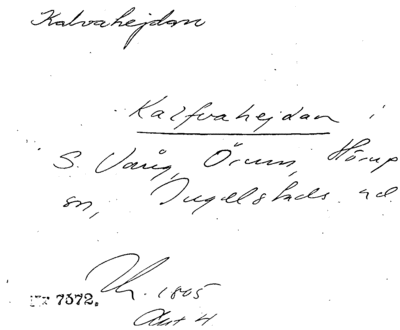 Kalvahejdan
Kalfvahejdan i
S. Vång, Örum, Hörup
sn, Ingelstads hd.
1805
Akt 4
7372.